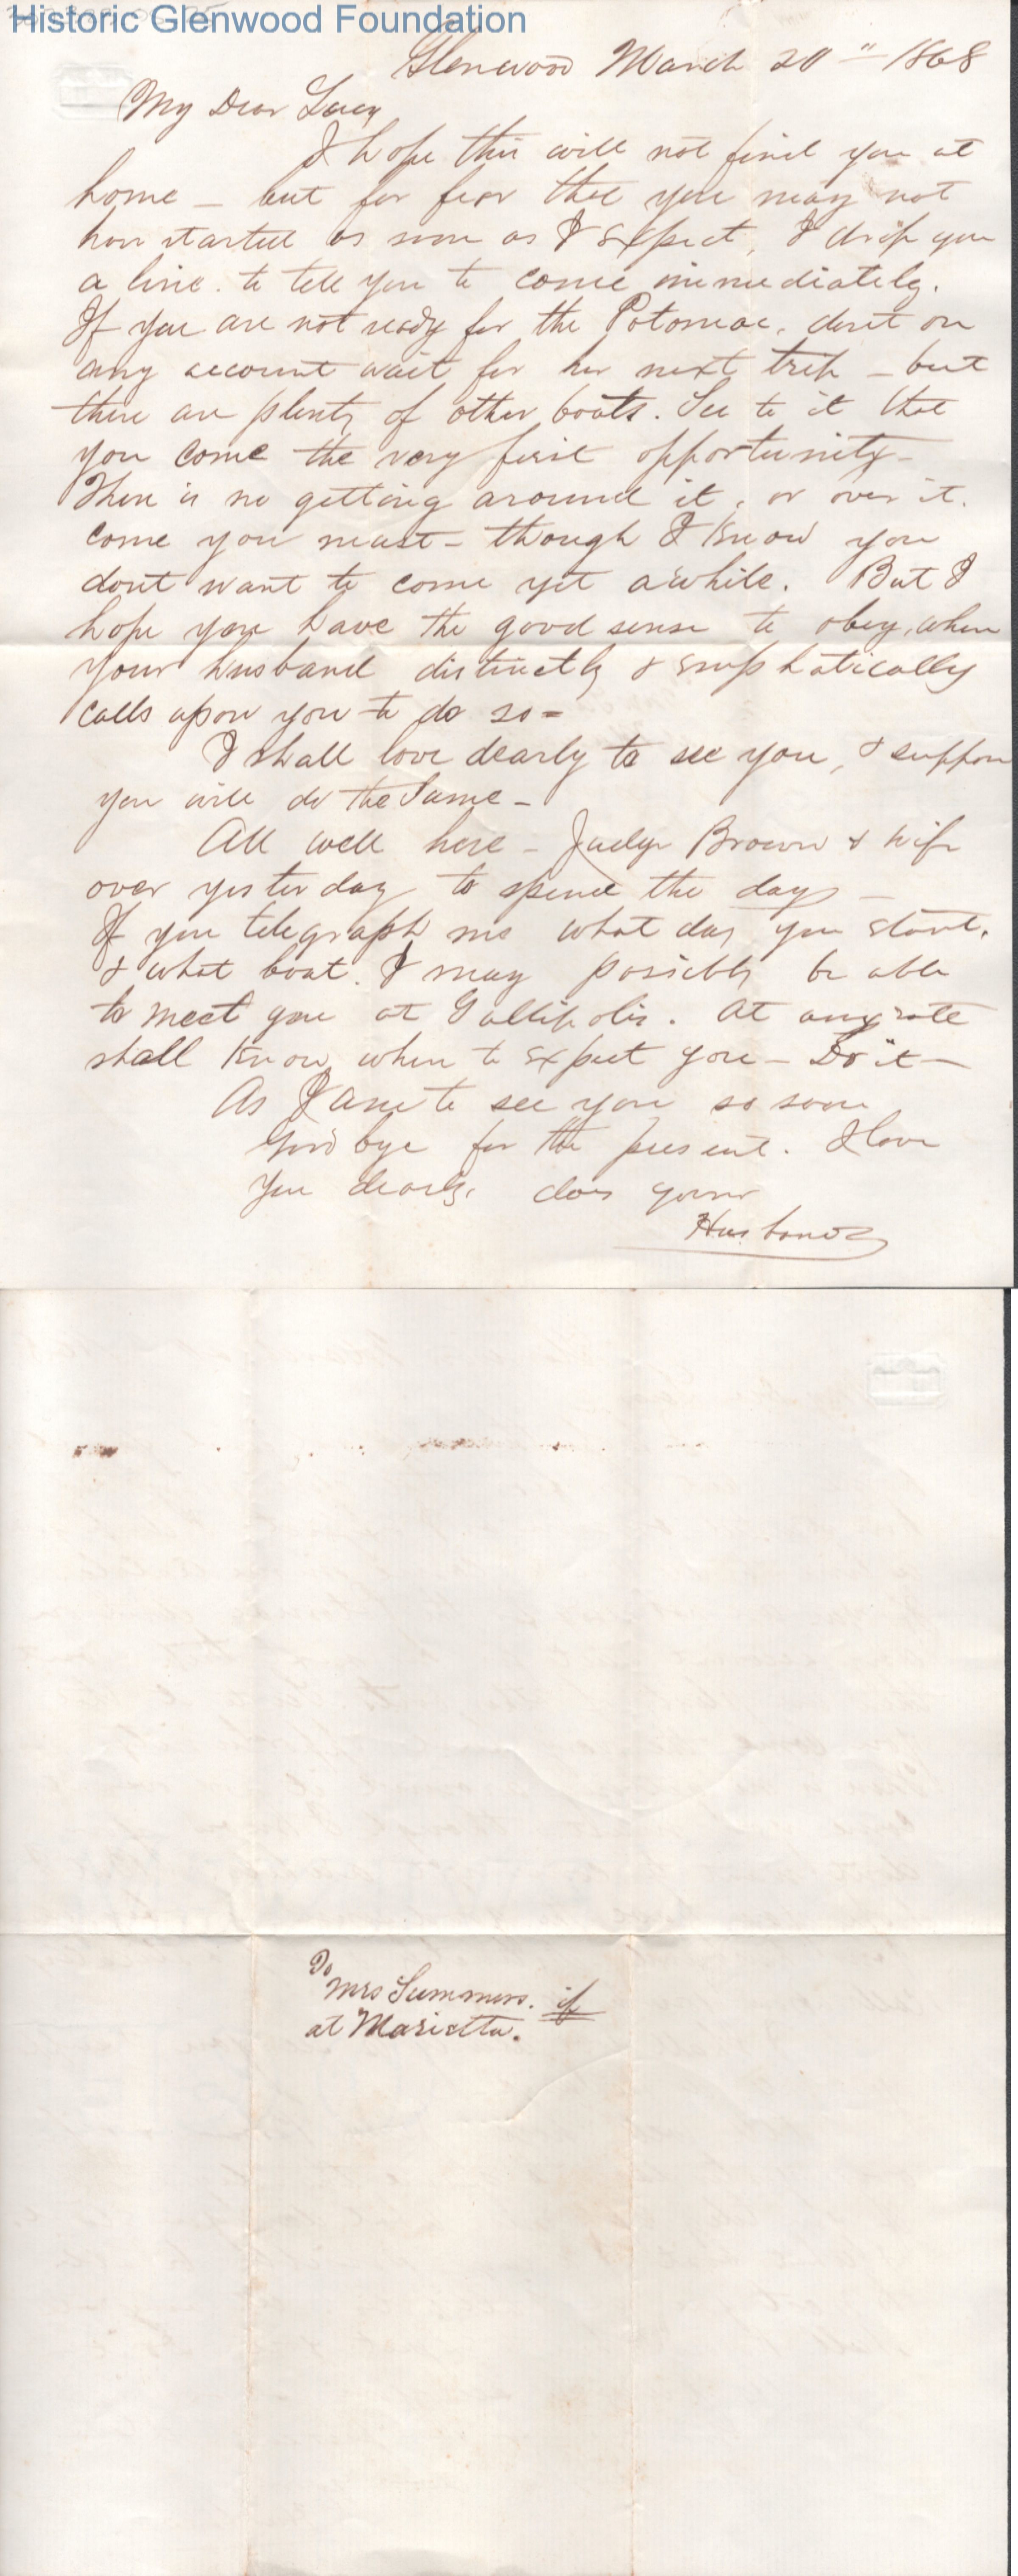 Historic Glenwood Foundation
Glenwood March 20" 1868
My Dear Lucy
I hope this will not find you at
home - but for fear that you may not
have started as soon as I expect, I drop you
a line to tell you to come immediately.
If you are not ready for the Potomac, dont on
any account wait for her next trip - but
there are plenty of other boats. See to it that
you come the very first opportunity -
There is no getting around it, or over it.
come you must - though I know you
dont want to come yet awhile. But I
hope you have the good sense to obey, when
your husband distinctly & emphatically
calls upon you to do so -
I shall love dearly to see you, & suppose
you will do the same -
All well here - Judge Brown & wife
over yesterday to spend the day -
If you telegraph me what day you start,
& what boat. I may possibly be able
to meet you at Gallipolis. At any rate
shall know when to expect you - Do it -
As I am to see you so soon
Good bye for the present. I love
you dearly, does your
Husband
To
Mrs Summers. if
at Marietta.